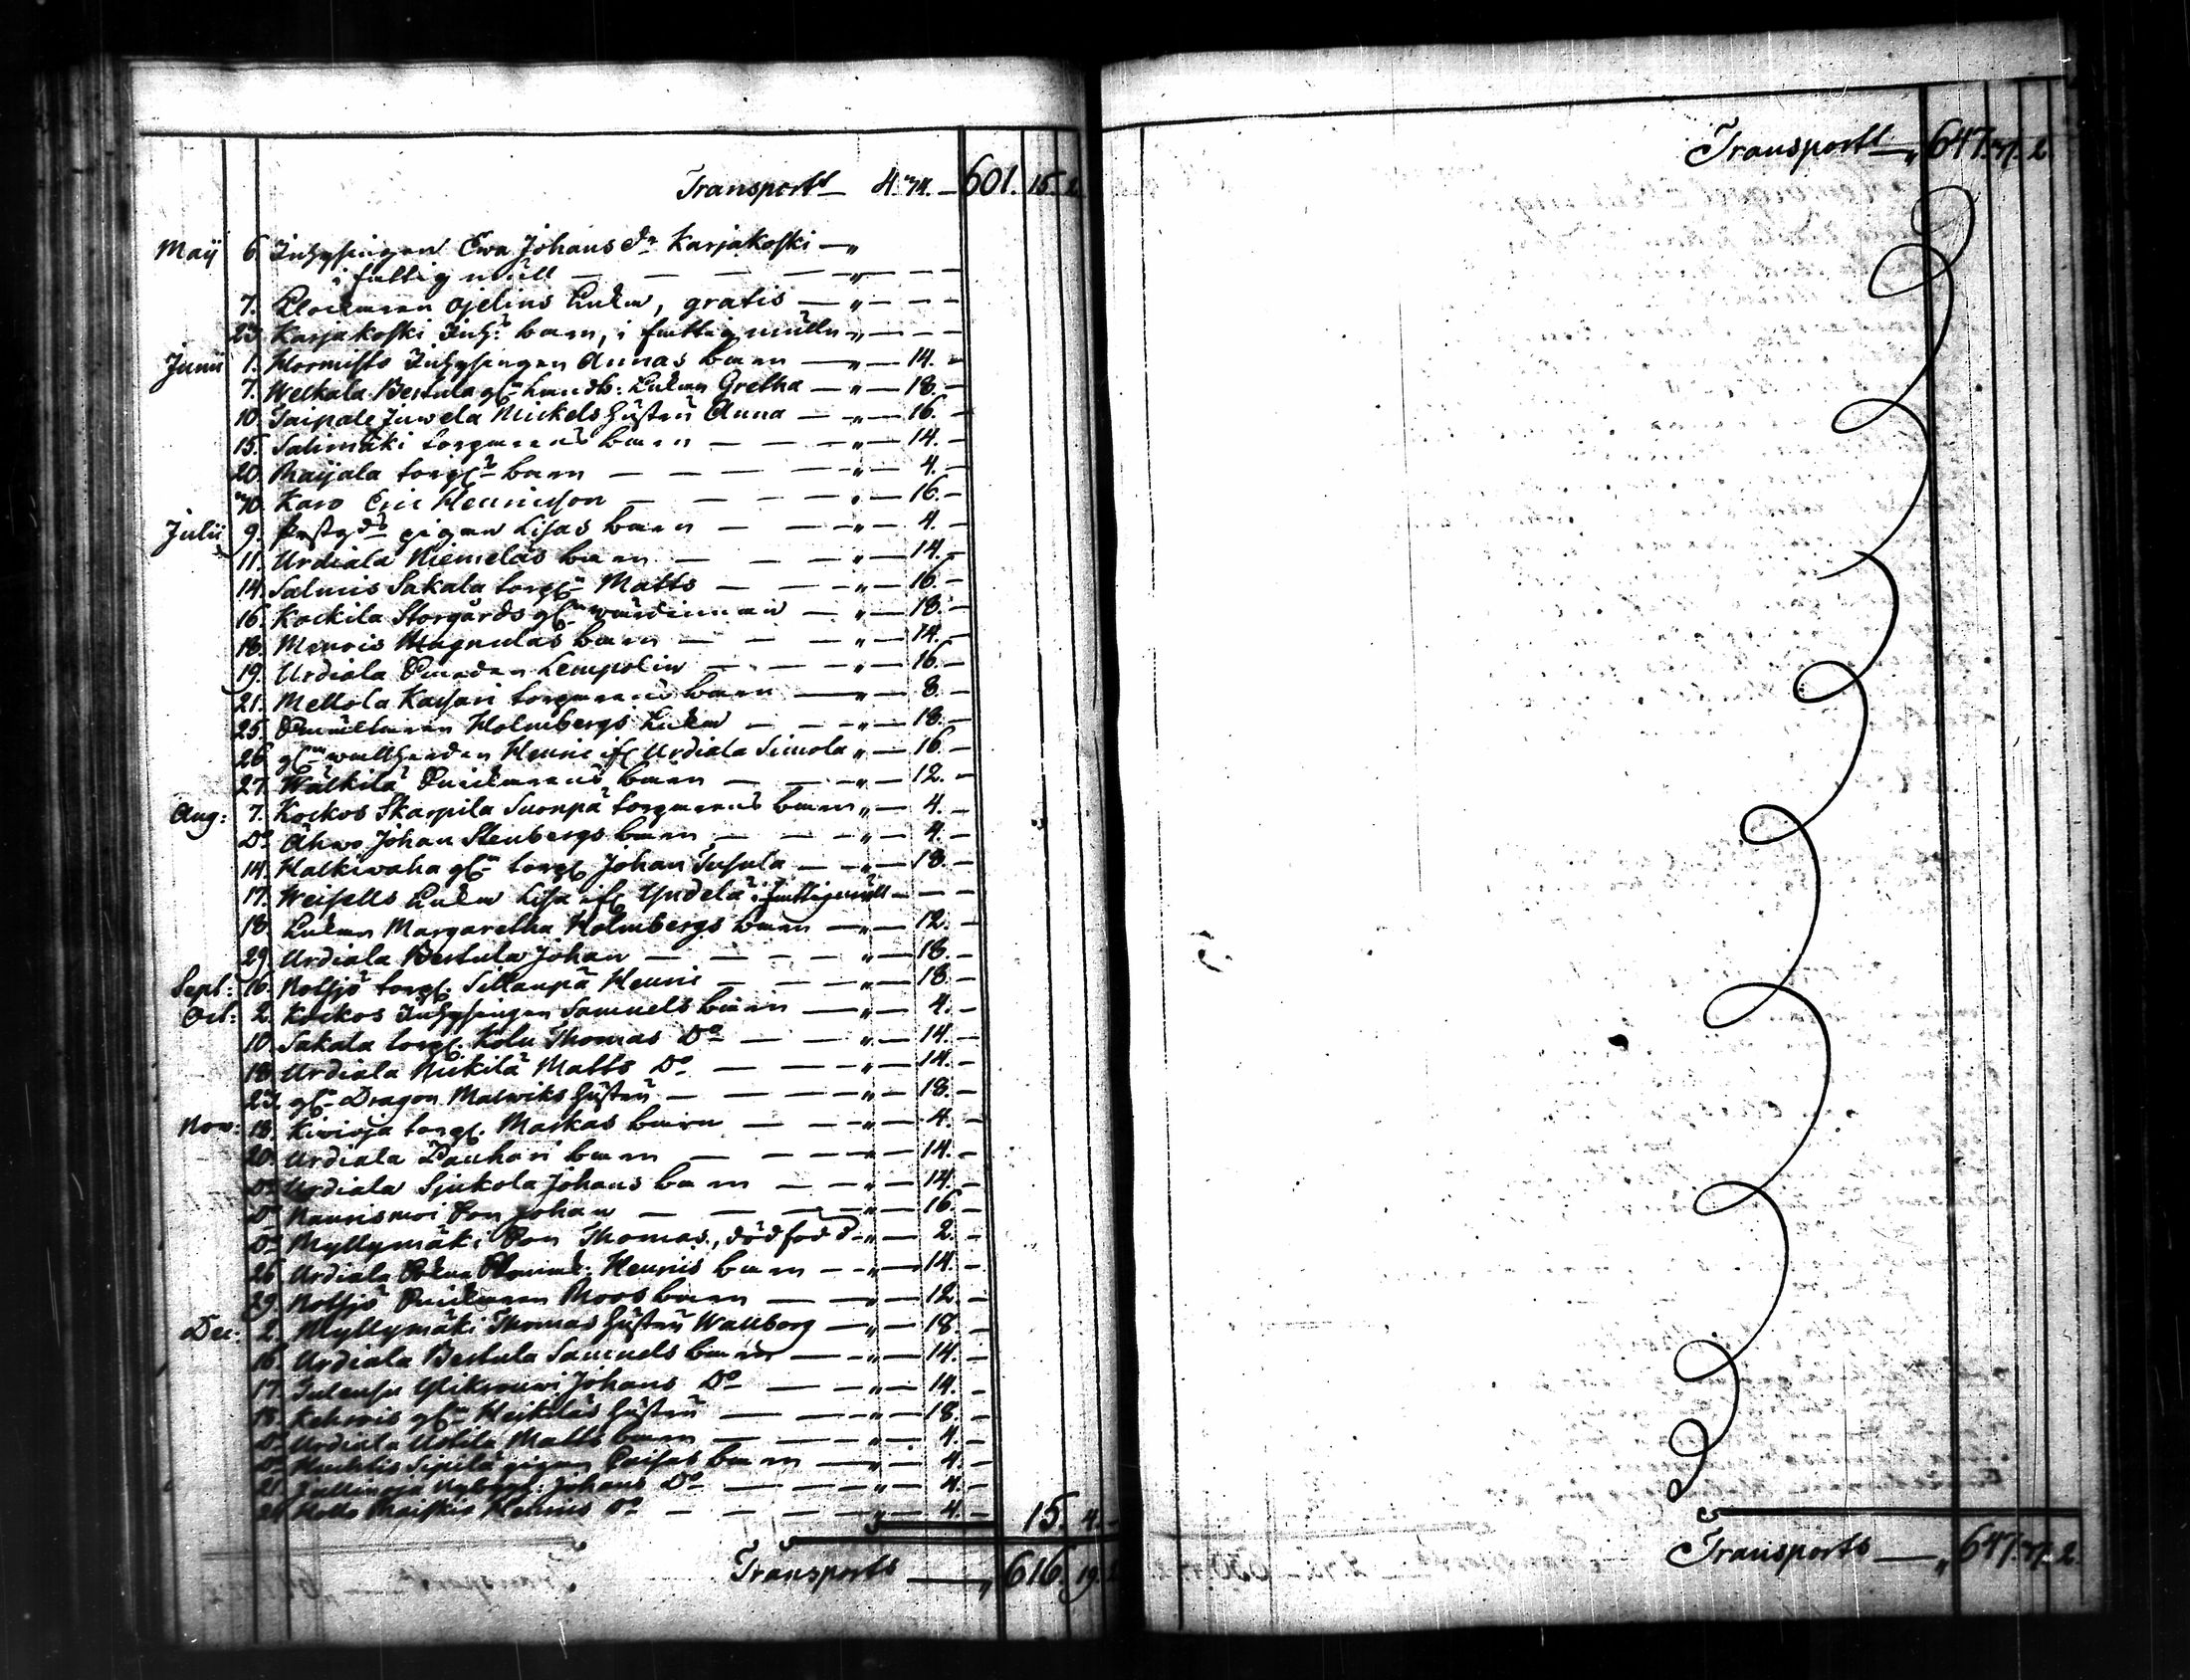 Transport — 4. 34. — 601. 15. 2
Maij 6. Inhysingen Ewa Johans dr Karjakoski — "
i fattig mull — — — — — " — — —
7. Klockaren Ojelins Enka, gratis — " — — —
23. Karjakoski Inh:s barn, i fattig mulln " — — —
Junii 1. Hormisto Inhysingen Annas barn — " — 14. —
7. Welkala Bertula gl: Enkan Gretha — " — 18. —
10. Taipale Juwela Mickels Hustru Anna — " — 16. —
15. Salimäki torparens barn — — — " — 14. —
20. Maijala torp:s barn — — — — " — 4. —
30. Karo Eric Henricson — — — — " — 16. —
Julii 9. Prestgds pigan Lisas barn — — " — 4. —
11. Urdiala Niemeläs barn — — — " — 14. —
14. Salmis Sakala torp: Matts — — — " — 16. —
16. Kockila Storgårds gl: wärdinnan — " — 18. —
18. Menois Magnulas barn — — — " — 14. —
19. Urdiala Lempolin — — — " — 16. —
21. Mellola Kaisari torparens barn — " — 8. —
25. Holmbergs Enka — — — " — 18. —
26. gl: Henric ifr Urdiala Simola " — 16. —
27. Wälkilä barn — — — " — 12. —
Aug: 7. Kockos Skarpila Suonpä torparens barn " — 4. —
Do Ahwo Johan Stenbergs barn — — — " — 4. —
14. Halkiwaha gl: torp: Johan Tusula — " — 18. —
17. Weisells Enka Lisa ifr i fattigmull — — —
18. Enkan Margaretha Holmbergs barn — " — 12. —
29. Urdiala Bertula Johan — — — — " — 18. —
Sept: 16. Notsjö torp: Sillanpä Henric — — " — 18. —
Oct: 2. Kockos Inhysingen Samuels barn — " — 4. —
10. Sakala torp: Kolu Thomas Do — — " — 14. —
18. Urdiala Nickilä Matts Do — — — " — 14. —
23. gl: Dragon Malwiks Hustru — — — " — 18. —
Nov: 18. Kiwioja torp: Maskas barn — — " — 4. —
20. Urdiala Pauhari barn — — — " — 14. —
Do Urdiala Sjukola Johans barn — — " — 14. —
Do Naurismoi Son Johan — — — " — 16. —
Do Myllymäki Son Thomas, dödfödd — " — 2. —
26. Urdiala Henrics barn — " — 14. —
29. Notsjö Moos barn — — " — 12. —
Dec: 2. Myllymäki Thomas Hustru Wallborg — " — 18. —
16. Urdiala Bertula Samuels barn — — " — 14. —
17. Johans Do — — — " — 14. —
18. Kehrois gl: Heikiläs Hustru — — " — 18. —
Do Urdiala Uotila Matts barn — — " — 4. —
Do Sipilä pigan Caisas barn — " — 4. —
21. Johans Do — — " — 4. —
24. Henrics Do — — — " — 4. —
15. 4. —
Transporto — " 616. 19. 2
Transport — " 647. 37. 2.
Transporto — " 647. 37. 2.